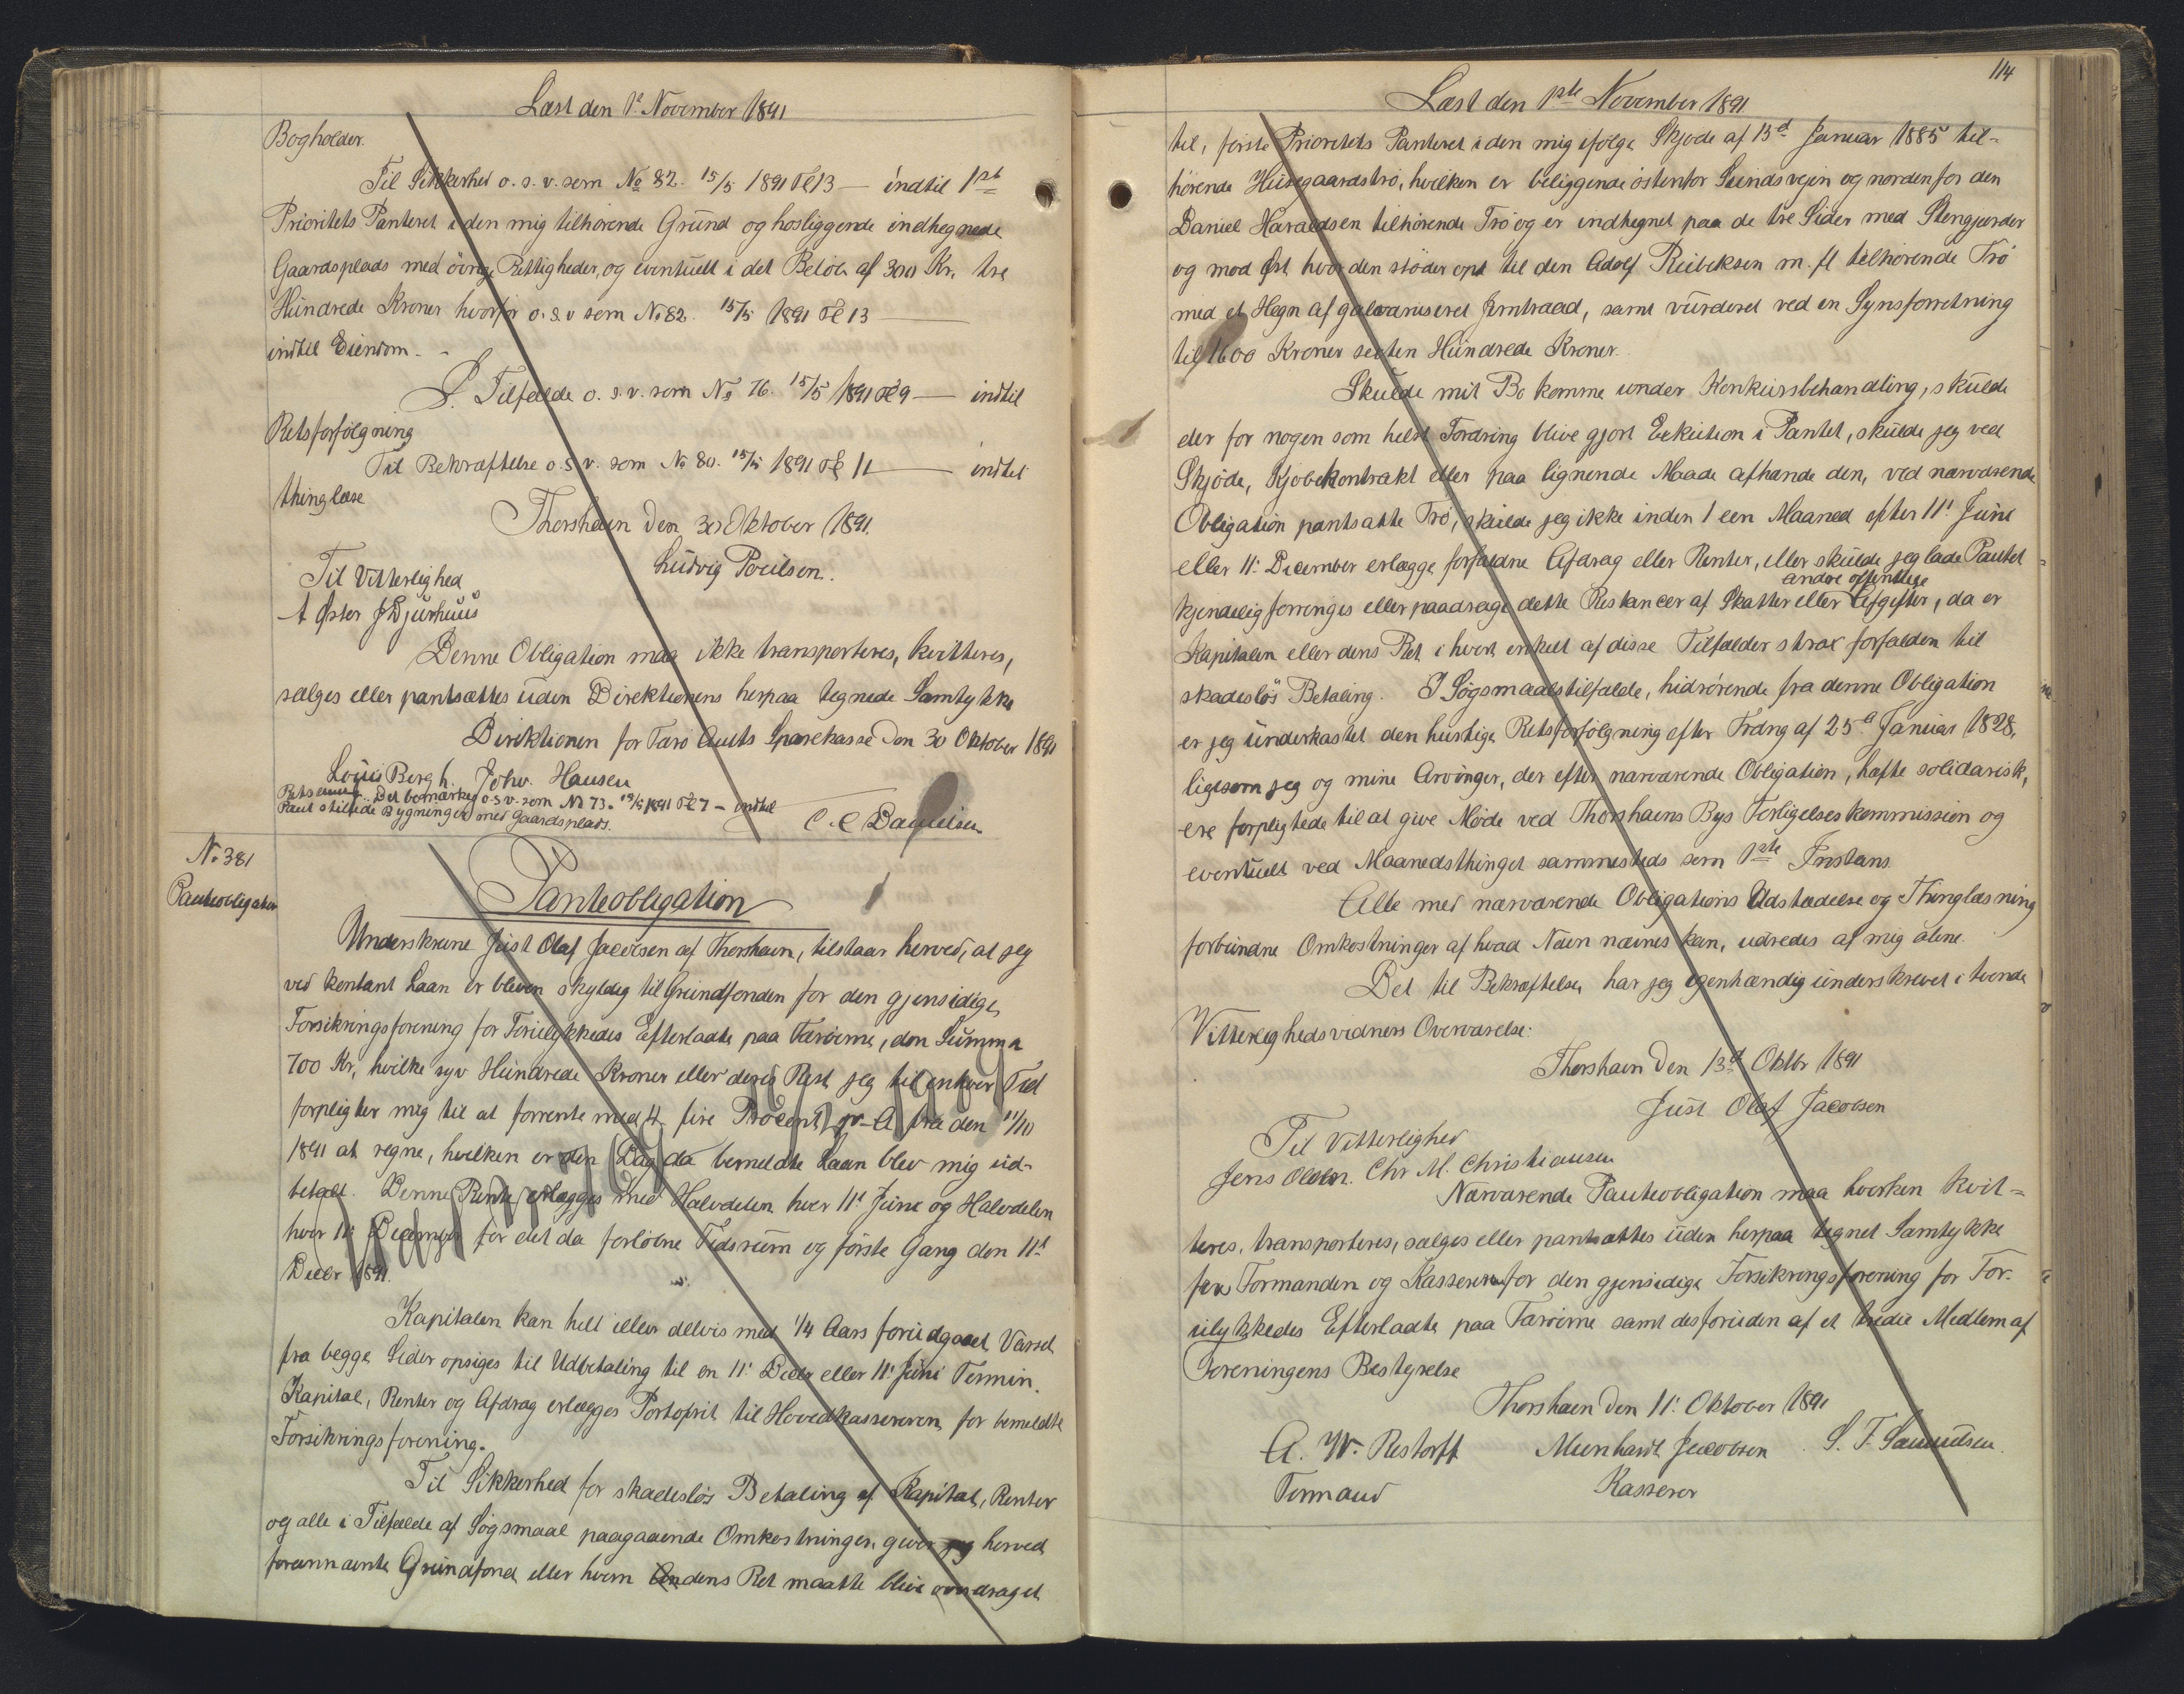 Læst den 1ᵉ November 1891
Bogholder.
Til Sikkerhed o. s. v. som No 82. 15/5 1891 Fol 13 — indtil 1ste
Prioritets Panteret i den mig tilhørende Grund og hosliggende indhegnede
Gaardsplads med øvrige Rettigheder, og eventuelt i det Beløb af 300 Kr. tre
Hundrede Kroner hvorfor o. s. v som No 82. 15/5 1891 Fol 13 —
indtil Eiendom. -
I Tilfælde o. s. v. som No 76. 15/5 1891 Fol 9 — indtil
Retsforfølgning
Til Bekræftelse o. s. v. som No 80. 15/5 1891 Fol 11 — indtil
thinglæse
Thorshavn den 30 Oktober 1891.
Ludvig Poulsen.
Til Vitterlighed
A Øster J Djurhuus
Denne Obligation maa ikke transporteres, kvitteres,
sælges eller pantsættes uden Direktionens herpaa tegnede Samtykke
Direktionen for Færø Amts Sparekasse den 30 Oktober 1891
Louis Bergh. Johs. Hansen
C. C Danielsen
Det bemærkes o. s. v. som No 73. 15/5 1891 Fol 7 — indtil
Pant stillede Bygninger med Gaardsplads.
No 381
Panteobligation
Panteobligation
Underskrevne Just Olaf Jacobsen af Thorshavn, tilstaar herved, at jeg
ved kontant Laan er bleven skyldig til Grundfonden for den gjensidige
Forsikringsforening for Forulykkedes Efterladte paa Færøerne, den Summa
700 Kr, hvilke syv Hundrede Kroner eller deres Rest jeg til enhver Tid
forpligter mig til at forrente med 4 fire Procent p. A fra den 11/10
1891 at regne, hvilken er den Dag da bemeldte Laan blev mig ud-
betalt. Denne Rente erlægges med Halvdelen hver 11' Juni og Halvdelen
hver 11' December for det da forløbne Tidsrum og første Gang den 11'
Decbr 1891.
Kapitalen kan helt eller delvis med 1/4 Aars forudgaaet Varsel
fra begge Sider opsiges til Udbetaling til en 11' Decbr eller 11' Juni Termin.
Kapital, Renter og Afdrag erlægges Portofrit til Hovedkassereren for bemeldte
Forsikringsforening.
Til Sikkerhed for skadesløs Betaling af Kapital, Renter
og alle i Tilfælde af Søgsmaal paagaaende Omkostninger, giver jeg herved
forannævnte Grundfond eller hvem dens Ret maatte blive overdraget
114
Læst den 1ste November 1891
til, første Prioritets Panteret i den mig ifølge Skjøde af 13d Januar 1885 til-
hørende Husegaardstrø, hvilken er beliggende østenfor Sundsvejen og nordenfor den
Daniel Haraldsen tilhørende Trø og er indhegnet paa de tre Sider med Stengjærder
og mod Øst hvor den støder op til den Adolf Reibeksen m. fl tilhørende Trø
med et Hegn af galvaniseret Jerntraad, samt vurderet ved en Synsforretning
til 1600 Kroner sexten Hundrede Kroner.
Skulde mit Bo komme under Konkursbehandling, skulde
der for nogen som helst Fordring blive gjort Exekution i Pantet, skulde jeg ved
Skjøde, Kjøbekontrakt eller paa lignende Maade afhænde den, ved nærværende
Obligation pantsatte Trø, skulde jeg ikke inden 1 een Maaned efter 11' Juni
eller 11' December erlægge forfaldne Afdrag eller Renter, eller skulde jeg lade Pantet
andre offentlige
kjendelig forringes eller paadrage dette Restancer af Skatter eller Afgifter, da er
Kapitalen eller dens Rest i hvert enkelt af disse Tilfælder strax forfalden til
skadesløs Betaling. I Søgsmaalstilfælde, hidrørende fra denne Obligation
er jeg underkastet den hurtige Retsforfølgning efter Frdng af 25' Januar 1828,
ligesom jeg og mine Arvinger, der efter nærværende Obligation, hæfte solidarisk,
ere forpligtede til at give Møde ved Thorshavns Bys Forligelseskommission og
eventuelt ved Maanedsthinget sammesteds som 1ste Instans
Alle med nærværende Obligations Udstædelse og Thinglæsning
forbundne Omkostninger af hvad Navn nævnes kan, udredes af mig alene.
Det til Bekræftelse har jeg egenhændig underskrevet i tvende
Vitterlighedsvidners Overværelse:
Thorshavn den 13d Oktbr 1891
Just Olaf Jacobsen
Til Vitterlighed
Jens Olsen. Chr M. Christiansen
Nærværende Panteobligation maa hverken kvit=
teres, transporteres, sælges eller pantsættes uden herpaa tegnet Samtykke
fra Formanden og Kassereren for den gjensidige Forsikringsforening for For-
ulykkedes Efterladte paa Færøerne samt desforuden af et tredie Medlem af
Foreningens Bestyrelse
Thorshavn den 11' Oktober 1891
A. W. Restorff Meinhardt Jacobsen S. F. Samuelsen.
Formand Kasserer